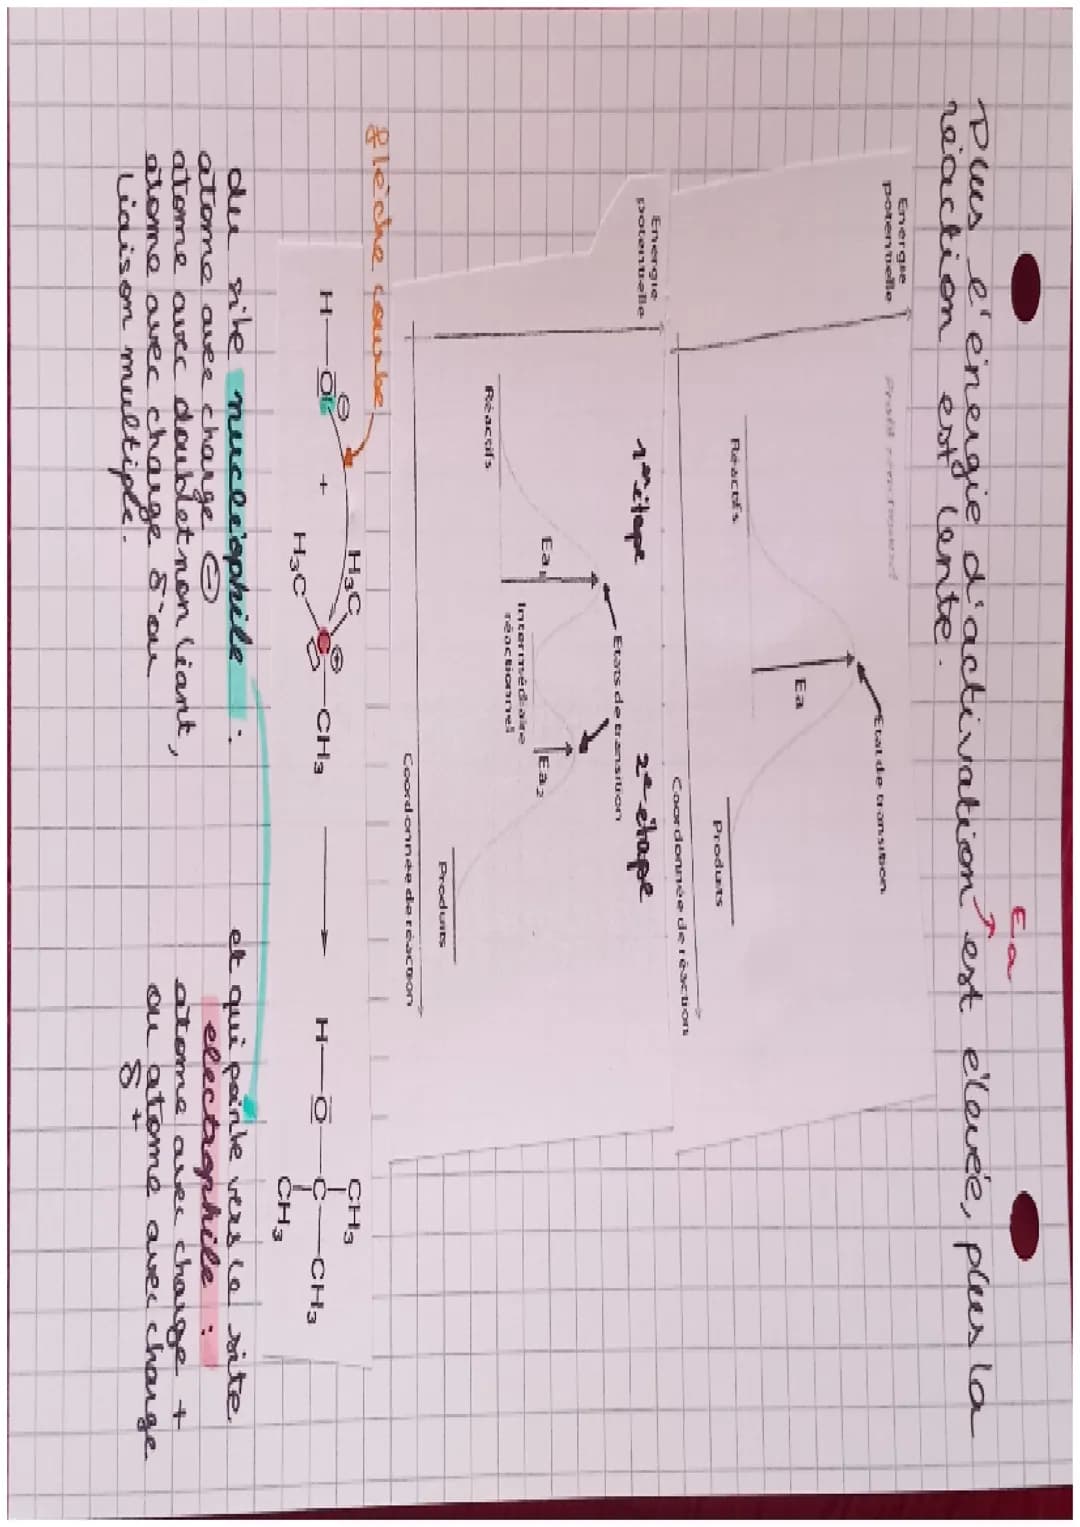 Ea
Plus l'énergie d'activation est élevée, plus la
réaction est lente.
Energie
potentielle
Etat de transition
Ea
Réactifs
Produits
Coordonnée de réaction
Energie
potentielle
1ère étape
2e étape
Etats de transition
Ea1
Ea2
Intermédiaire
réactionnel
Réactifs
Produits
Coordonnée de réaction
flèche courbe
H—O⊖ + H3C H3C C⊕ —CH3 ⟶ H—O—C—CH3 CH3 CH3
du site nucléophile :
atome avec charge ⊖
atome avec doublet non liant,
atome avec charge δ- ou
liaison multiple.
et qui pointe vers le site
electrophile :
atome avec charge +
ou atome avec charge
δ+